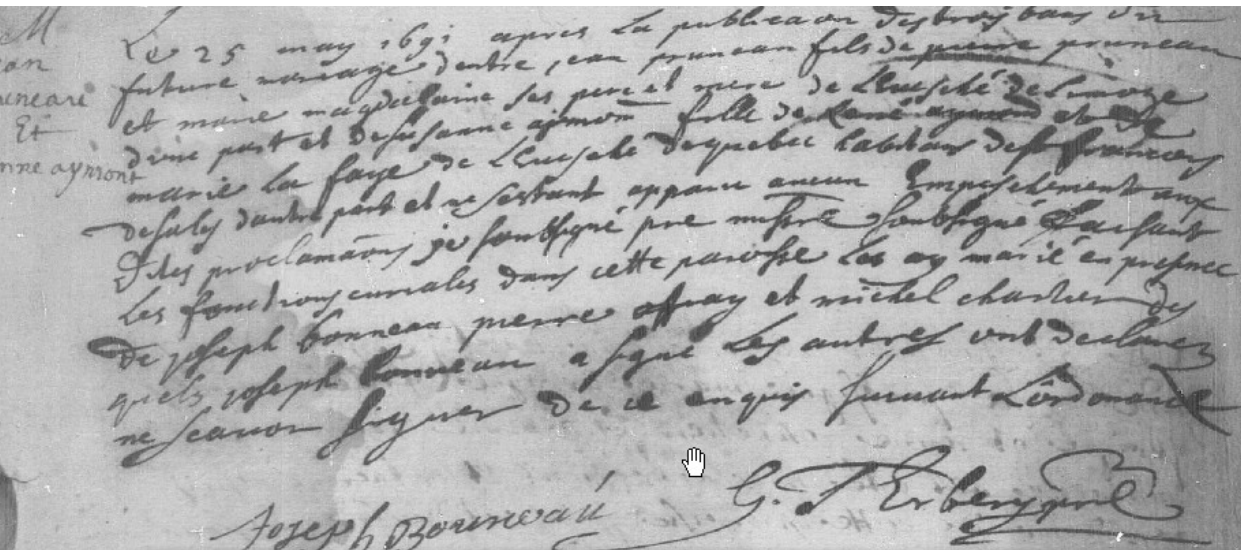 M
Et
Le 25 may 1691 apres La publicaon des trois bans du
future mariage dentre jean pruneau fils de pierre pruneau
et marie magdelaine ses pere et mere de Leuesché de Limoge
dune part et de susanne aymont fille de René aymond et de
marie La faye de Leuesché de quebec habitans de st francois
desales dautre part et ne sestant apparu aucun Empeschement aux
dites proclamaons je soubsigné pre missre soubsigné faisant
Les fonctions curiales dans cette paroisse Les ay marié en presence
de joseph bonneau pierre et michel chartier des
quels joseph bonneau a signé Les autres ont declarez
ne scauoir signer de ce enquis suiuant Lordonance
Joseph Bonneau